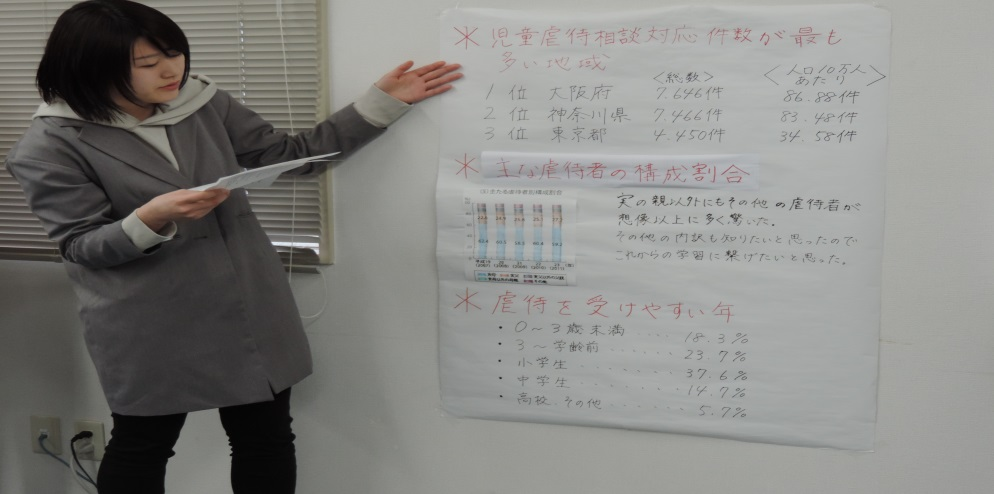 ＊児童虐待相談対応件数が最も
多い地域
〈総数〉 〈人口10万人あたり〉
1位 大阪府 7.646件 86.88件
2位 神奈川県 7.466件 83.48件
3位 東京都 4.450件 34.58件
＊主な虐待者の構成割合
実の親以外にもその他の虐待者が
想像以上に多く驚いた。
その他の内訳も知りたいと思ったので
これからの学習に繋げたいと思った。
＊虐待を受けやすい年
・0～3歳未満 ・・・・ 18.3%
・3～学齢前 ・・・・・・ 23.7%
・小学生 ・・・・・・・ 37.6%
・中学生 ・・・・・・・ 14.7%
・高校、その他 ・・・・・・ 5.7%